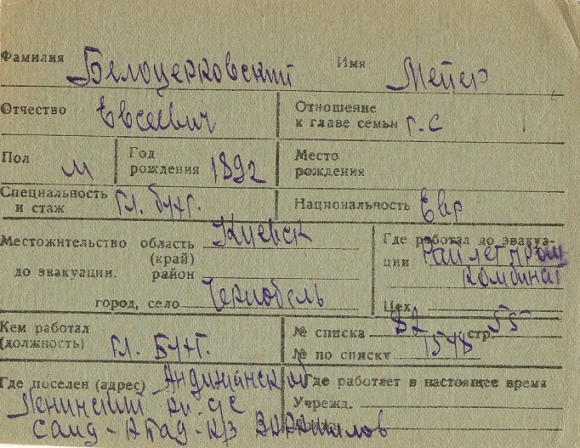 Фамилия Белоцерковский Имя Мейер
Отчество Евсеевич Отношение к главе семьи г.с
Пол м Год рождения 1892 Место рождения
Специальность и стаж Гл. бухг. Национальность Евр
Местожительство до эвакуации. область (край) Киевск
район
город, село Чернобель
Где работал до эвакуации Райлегпром комбинат
Цех
Кем работал (должность) Гл. Бухг.
№ списка 82 стр. 55
№ по списку 1548
Где поселен (адрес) Андижанской об
Ленинский
Саид-Абад к/з Ворошилов
Где работает в настоящее время
Учрежд.